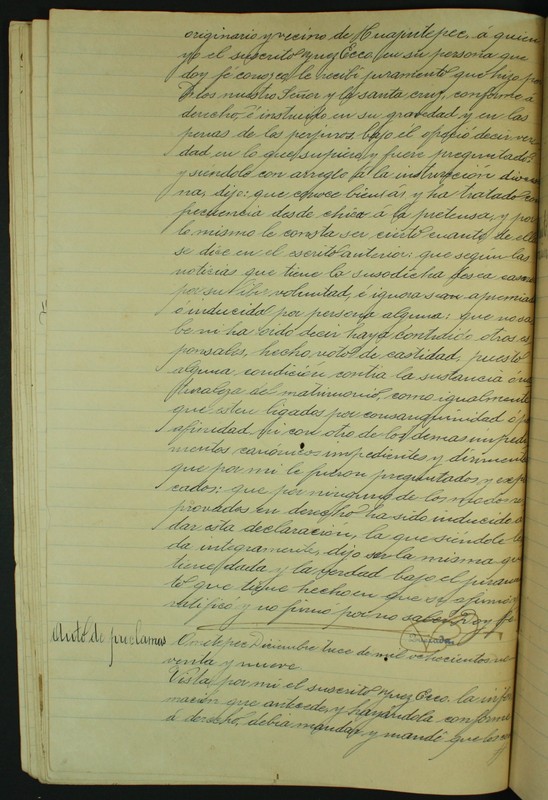 originario y vecino de Huajintepec, á quien
yo el suscrito Juez Ecco. en su persona que
doy fé conozco, le recibí juramento que hizo por
Dios nuestro Señor y la santa cruz, conforme á
derecho, é instruido en su gravedad y en las
penas de los perjuros, bajo el ofreció decir ver
dad en lo que supiere y fuere preguntado
y siendolo con arreglo á la instrucción
na, dijo: que conoce bien y ha tratado con
frecuencia desde chica á la pretensa, y por
lo mismo le consta ser cierto cuanto de ella
se dice en el escrito anterior: que segun las
noticias que tiene la susodicha desea casarse
por su libre voluntad, é ignora sean apremiada
ó inducida por persona alguna: que no sa
be ni ha oido decir haya contraido otros es
ponsales, hecho voto de castidad, puesto
alguna condición contra la sustancia ó na
turaleza del matrimonio, como igualmente
que esten ligados por consanguinidad ó por
afinidad ni con otro de los demas impedi
mentos canonicos impedientes y dirimentes
que por mi le fueron preguntados y expli
cados: que por ninguno de los modos re
provados en derecho ha sido inducido á
dar esta declaración, la que siéndole lei
da integramente, dijo ser la misma que
tiene dada y la verdad bajo el juramen
to que tiene hecho en que se afirmó y
ratificó y no firmó por no saber. Doy fé
Auto de proclamas
Ometepec, Diciembre trece de mil ochocientos no
venta y nueve.
Vista por mi el suscrito Juez Ecco. la infor
mación que antecede, y hayandola conforme
á derecho, debia mandar y mandé que los